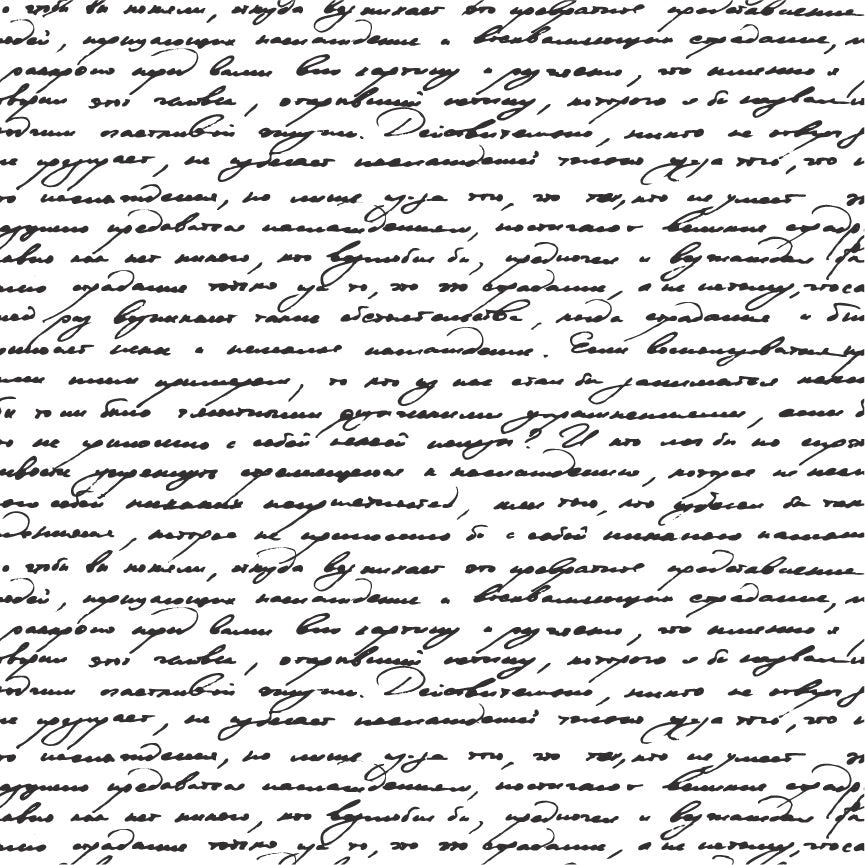 чтобы вы поняли, откуда возникает это превратное представление
людей, порицающих наслаждение и восхваляющих страдание,
раскрою перед вами всю картину и разъясню, что именно
говорил этот человек, открывший истину, которого я бы назвал
зодчим счастливой жизни. Действительно, никто не отвергает,
не презирает, не избегает наслаждений только из-за того, что
наслаждения, но лишь из-за того, что тех, кто не умеет
разумно предаваться наслаждениям, постигают великие
равно как нет никого, кто возлюбил бы, предпочел и возжаждал бы
само страдание только за то, что это страдание, а не потому, что
иной раз возникают такие обстоятельства, когда страдание и боль
приносят некое и немалое наслаждение. Если воспользоваться
простейшим примером, то кто из нас стал бы заниматься
бы то ни было тягостными физическими упражнениями, если бы
это не приносило с собой некой пользы? И кто мог бы по
справедливости упрекнуть стремящегося к наслаждению, которое не
несло бы с собой никаких неприятностей, или того, кто избегал бы
наслаждения, которое не приносило бы с собой никакого
чтобы вы поняли, откуда возникает это превратное представление
людей, порицающих наслаждение и восхваляющих страдание,
раскрою перед вами всю картину и разъясню, что именно
говорил этот человек, открывший истину, которого я бы назвал
зодчим счастливой жизни. Действительно, никто не отвергает,
не презирает, не избегает наслаждений только из-за того, что
наслаждения, но лишь из-за того, что тех, кто не умеет
разумно предаваться наслаждениям, постигают великие
равно как нет никого, кто возлюбил бы, предпочел и возжаждал бы
само страдание только за то, что это страдание, а не потому, что